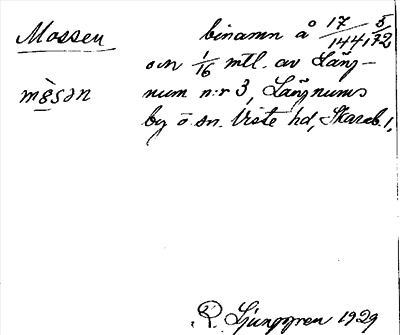 Mossen binamn å 17/144, 5/72
och 1/16 mtl. av Läng-
mòsən num n:r 3, Längnums
by o. sn. Viste hd, Skarab. l,
R. Ljunggren 1929